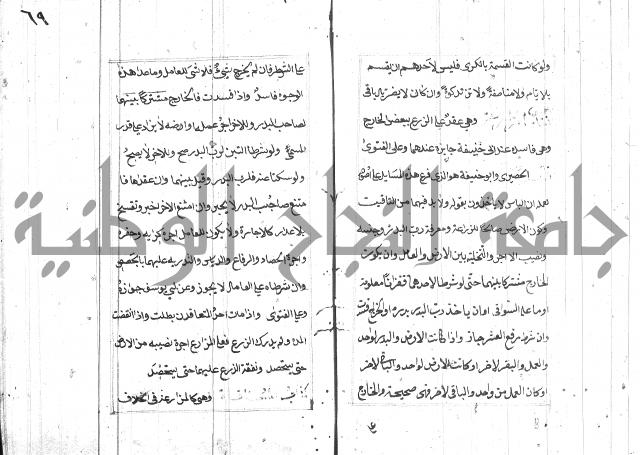 ٦٩
ولو كانت القسمة بالكرى فليس لاحدهم ان يقسم
بالايام ولا مناصفة ولا
وهي عقد على الزرع ببعض الخارج
وهي فاسدة عند ابي حنيفة جايزة عندهما وعلى الفتوى
الحصيري وابو حنيفة هو الذي فرع هذه المسايل على
ان الناس لا ياخذون بقوله ولا بد فيها من التاقيت
الارض صالحة للزراعة ومعرفة رب البذر وجنسه
ونصيب الاخر والتخلية بين الارض والعامل وان يكون
الخارج مشتركا بينهما حتى لو شرطا لاحدهما قفزانا معلومة
او ما على السواقي او ان ياخذ رب البذر بذره او الخراج
وان شرط رفع العشر جاز واذا كانت الارض والبذر لواحد
والعمل والبقر لاخر او كانت الارض لواحد والباقي لاخر
او كان العمل من واحد والباقي لاخر فهي صحيحة والخارج
على الشرط فان لم يخرج شيء فلا شيء للعامل وما عدا هذه
الوجوه فاسد واذا فسدت فالخارج
لصاحب البذر وللاخر اجر عمله او ارضه لا يزاد على قدر
المسمى ولو شرطا التبن لرب البذر صح وللاخر لا يصح
ولو سكتا عنه فلرب البذر وقيل بينهما وان عقداها فا
متنع صاحب البذر لا يجبر وان امتنع الاخر اجبر وتفسخ
بالاعذار كالاجارة ولا يكون للعامل اجرة كرابه وحفره
واجرة الحصاد والرفاع والدياس والتذرية عليهما بالحصص
وان شرطاه على العامل لا يجوز وعن ابي يوسف جوازه
وعليه الفتوى واذا مات احد المتعاقدين بطلت واذا انقضت
المدة ولم يدرك الزرع فعلى المزارع اجرة نصيبه من الارض
حتى يستحصد ونفقة الزرع عليهما حتى يستحصد
وهي كالمزارعة في الخلاف
جامعة النجاح الوطنية